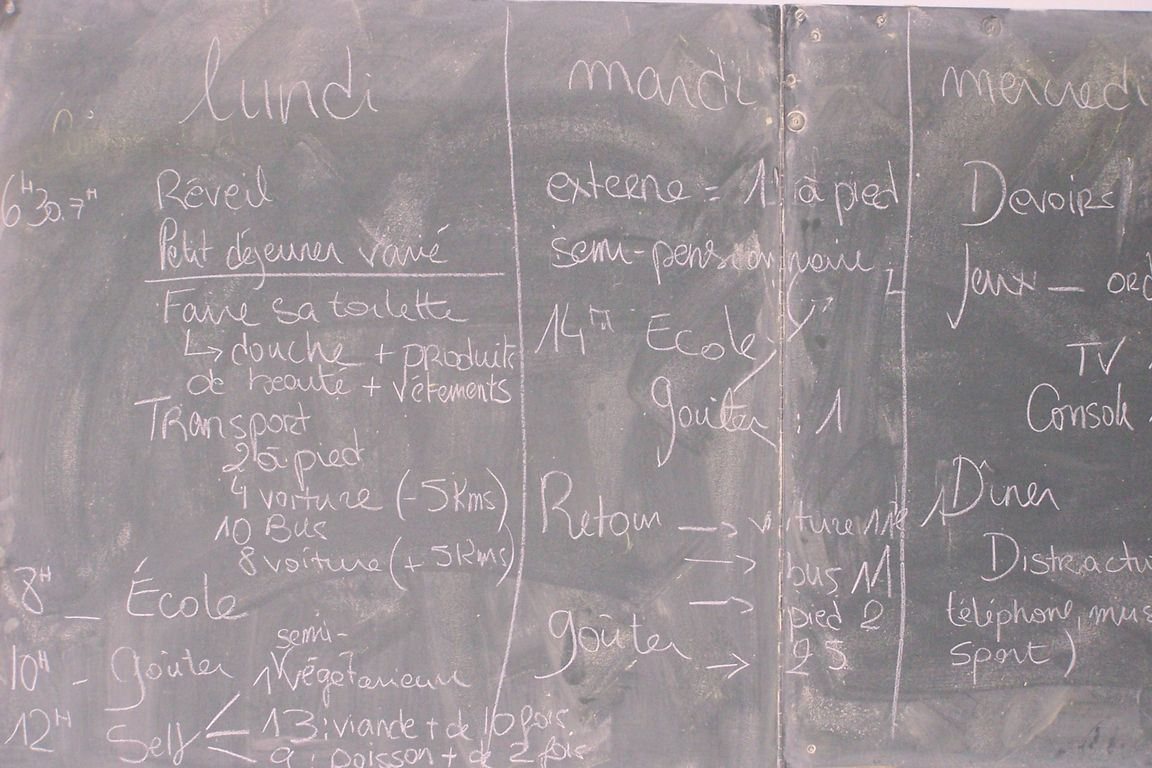 lundi
6H30.7H Réveil
Petit déjeuner varié
Faire sa toilette
↳ douche + produits
de beauté + vêtements
Transport
2 à pied
4 voiture (-5Kms)
10 Bus
8 voiture (+5Kms)
8H _ École
10H - goûter 1 semi-
végétarienne
12H Self < 13 : viande + de 10 fois
9 : poisson + de 2 fois
mardi
externe = 1 à pied
semi-pensionnaire
14H Ecole
goûter : 1
Retour → voiture
→ bus
→ pied 2
goûter → 25
mercredi
Devoirs
Jeux - ord
TV
Consol
Dîner
Distracti
téléphone, mus
sport)